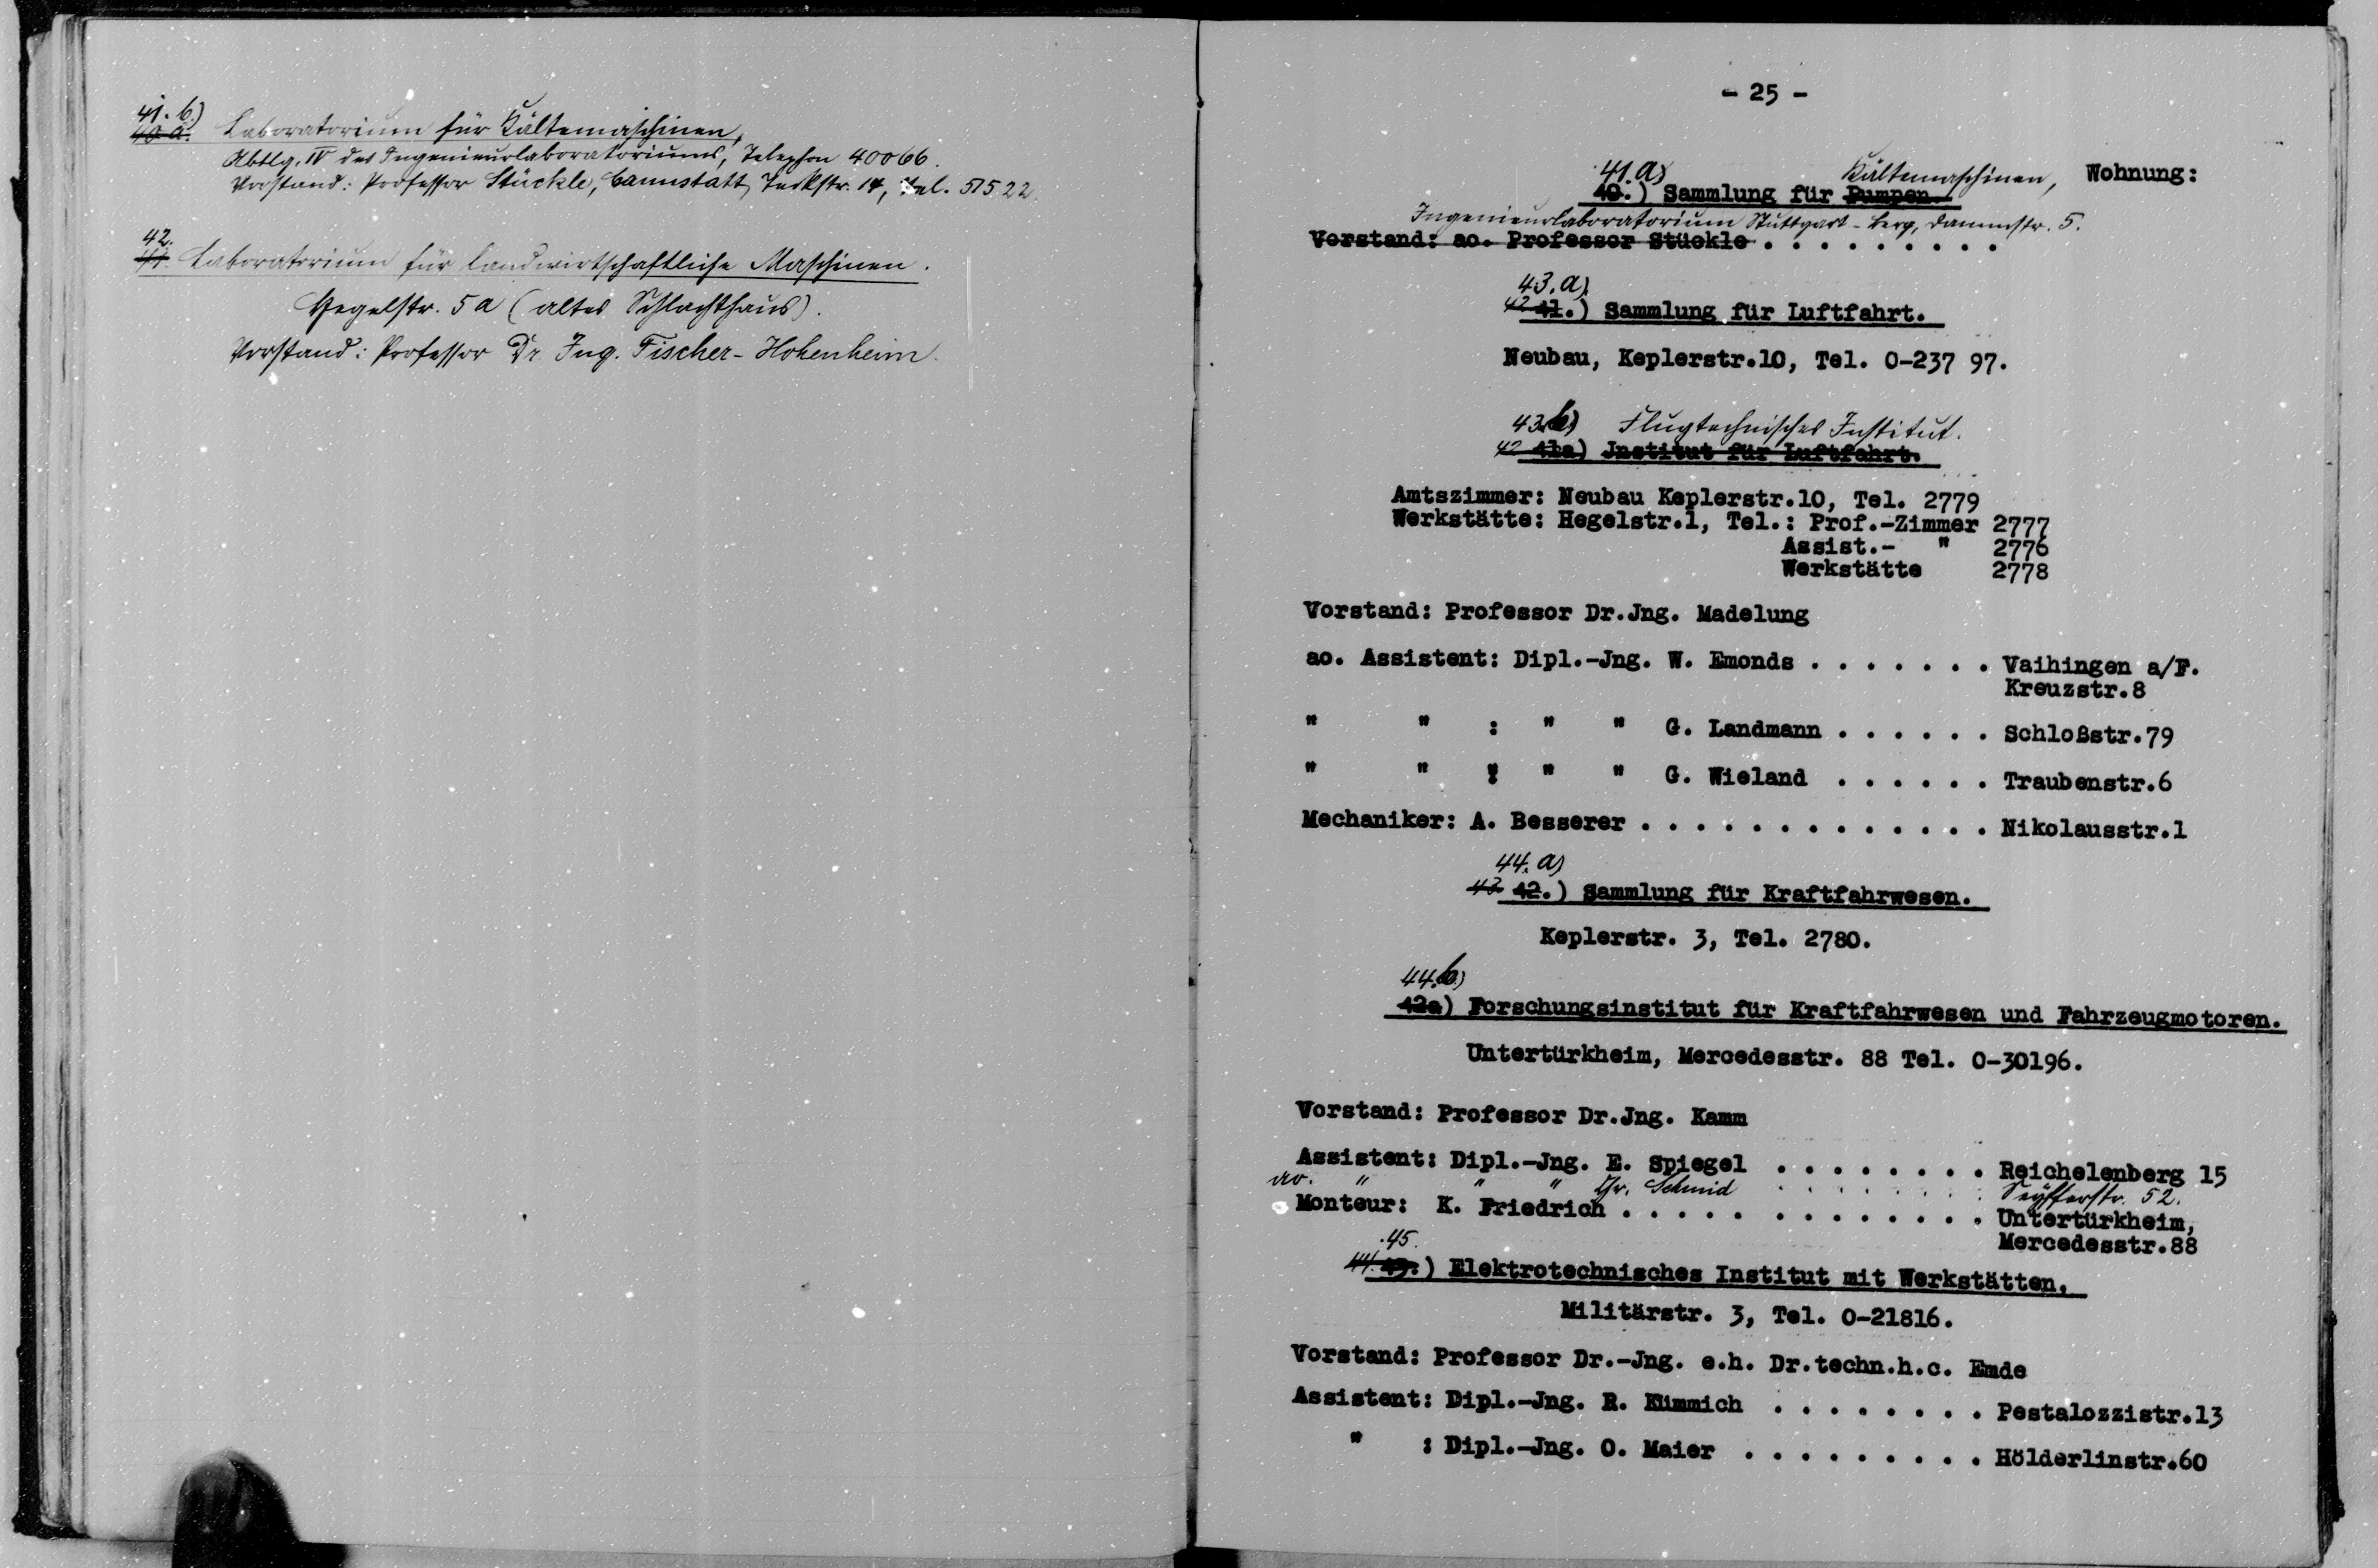 41. b.)
40 a. Laboratorium für Kältemaschinen,
Abtlg. IV des Ingenieurlaboratoriums, Telephon 40066.
Vorstand: Professor Stückle, Cannstatt, Teckstr. 14, Tel. 51522.
42.
41. Laboratorium für landwirtschaftliche Maschinen.
Hegelstr. 5 a (altes Schlachthaus).
Vorstand: Professor Dr. Ing. Fischer-Hohenheim.
- 25 -
41. a) Kältemaschinen, Wohnung:
40.) Sammlung für Pumpen.
Ingenieurlaboratorium Stuttgart-Berg, Dammstr. 5.
Vorstand: ao. Professor Stückle . . . . . . . . .
43. a)
42 41.) Sammlung für Luftfahrt.
Neubau, Keplerstr.10, Tel. 0-237 97.
43. b) Flugtechnisches Institut.
42 41a) Jnstitut für Luftfahrt.
Amtszimmer: Neubau Keplerstr.10, Tel. 2779
Werkstätte: Hegelstr.1, Tel.: Prof.-Zimmer 2777
Assist.- " 2776
Werkstätte 2778
Vorstand: Professor Dr.Jng. Madelung
ao. Assistent: Dipl.-Jng. W. Emonds . . . . . . . Vaihingen a/F.
Kreuzstr.8
" " : " " G. Landmann . . . . . . Schloßstr.79
" " : " " G. Wieland . . . . . . Traubenstr.6
Mechaniker: A. Besserer . . . . . . . . . . . . . Nikolausstr.1
44. a)
43 42.) Sammlung für Kraftfahrwesen.
Keplerstr. 3, Tel. 2780.
44. b)
42a) Forschungsinstitut für Kraftfahrwesen und Fahrzeugmotoren.
Untertürkheim, Mercedesstr. 88 Tel. 0-30196.
Vorstand: Professor Dr.Jng. Kamm
Assistent: Dipl.-Jng. E. Spiegel . . . . . . . . Reichelenberg 15
ao. " " " Chr. Schmid . . . . . . . Seyfferstr. 52.
Monteur: K. Friedrich . . . . . . . . . . . . . Untertürkheim,
Mercedesstr.88
45.
44. 43.) Elektrotechnisches Institut mit Werkstätten,
Militärstr. 3, Tel. 0-21816.
Vorstand: Professor Dr.-Jng. e.h. Dr.techn.h.c. Emde
Assistent: Dipl.-Jng. R. Kümmich . . . . . . . . Pestalozzistr.13
" : Dipl.-Jng. O. Maier . . . . . . . . . Hölderlinstr.60